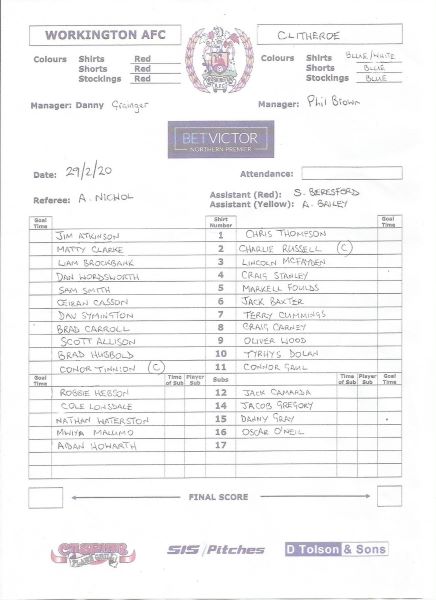 WORKINGTON AFC CLITHEROE
Colours Shirts Red Colours Shirts BLUE/WHITE
Shorts Red Shorts BLUE
Stockings Red Stockings BLUE
Manager: Danny Grainger Manager: Phil Brown
BETVICTOR
NORTHERN PREMIER
Date: 29/2/20 Attendance:
Referee: A. NICHOL Assistant (Red): S. BERESFORD
Assistant (Yellow): A. BAILEY
Goal Time Shirt Number Goal Time
JIM ATKINSON 1 CHRIS THOMPSON
MATTY CLARKE 2 CHARLIE RUSSELL (C)
LIAM BROCKBANK 3 LINCOLN MCFAYDEN
DAN WORDSWORTH 4 CRAIG STANLEY
SAM SMITH 5 MARKELL FOULDS
CEIRAN CASSON 6 JACK BAXTER
DAV SYMINGTON 7 TERRY CUMMINGS
BRAD CARROLL 8 CRAIG CARNEY
SCOTT ALLISON 9 OLIVER WOOD
BRAD HUBBOLD 10 TYRHYS DOLAN
CONOR TINNION (C) 11 CONNOR GAUL
Goal Time Time of Sub Player of Sub Subs Time of Sub Player of Sub Goal Time
ROBBIE HEBSON 12 JACK CAMARDA
COLE LONSDALE 14 JACOB GREGORY
NATHAN WATERSTON 15 DANNY GRAY
MWIYA MALUMO 16 OSCAR O'NEIL
AIDAN HOWARTH 17
FINAL SCORE
SIS/Pitches D Tolson & Sons